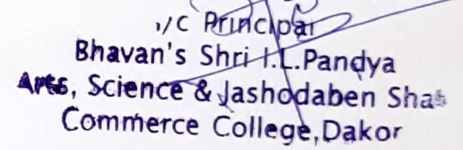 I/C Principal
Bhavan's Shri I.L.Pandya
Arts, Science & Jashodaben Shah
Commerce College,Dakor